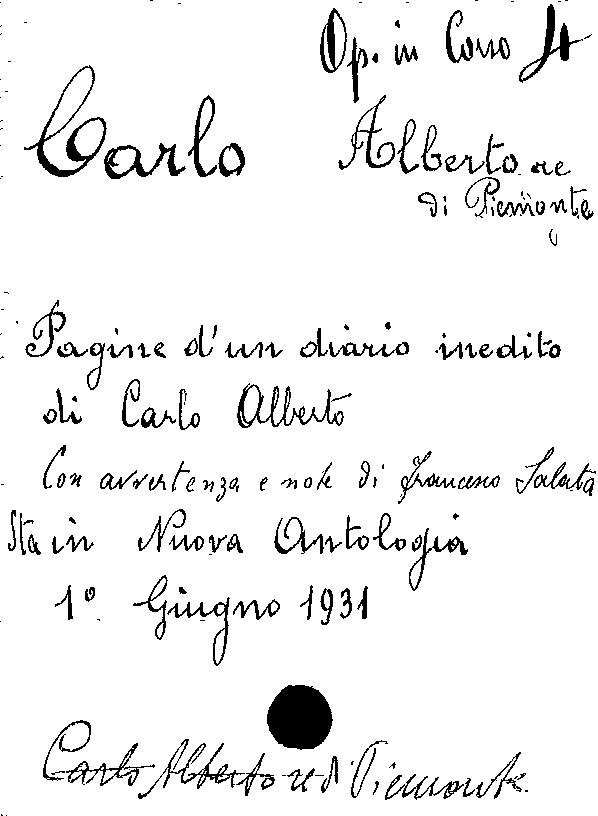 Op. in Corso 4
Carlo Alberto re
di Piemonte
Pagine d'un diario inedito
di Carlo Alberto
Con avvertenza e note di Francesco Salata
Sta in Nuova Antologia
1° Giugno 1931
Carlo Alberto re di Piemonte